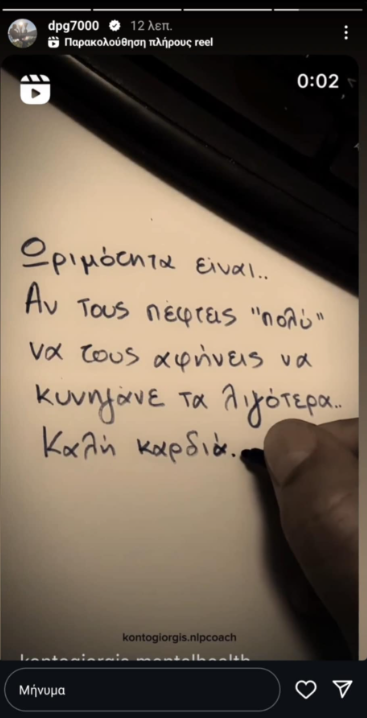 dpg7000 12 λεπ.
Παρακολούθηση πλήρους reel
0:02
Ωριμότητα είναι..
Αν τους πέφτεις "πολύ"
να τους αφήνεις να
κυνηγάνε τα λιγότερα..
Καλή καρδιά.
kontogiorgis.nlpcoach
kontogiorgis.mentalhealth
Μήνυμα